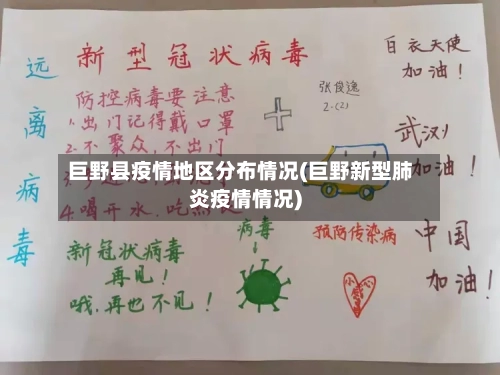 新型冠状病毒
远离病毒
防控病毒要注意
1.出门记得戴口罩
2.不聚众,不出门
4.喝开水,吃熟
新冠状病毒
再见!
哦.再也不见!
张俊逸
2.(2)
白衣天使
加油!
武汉
加油!
中国
加油!
病毒
预防传染病
巨野县疫情地区分布情况(巨野新型肺
炎疫情情况)